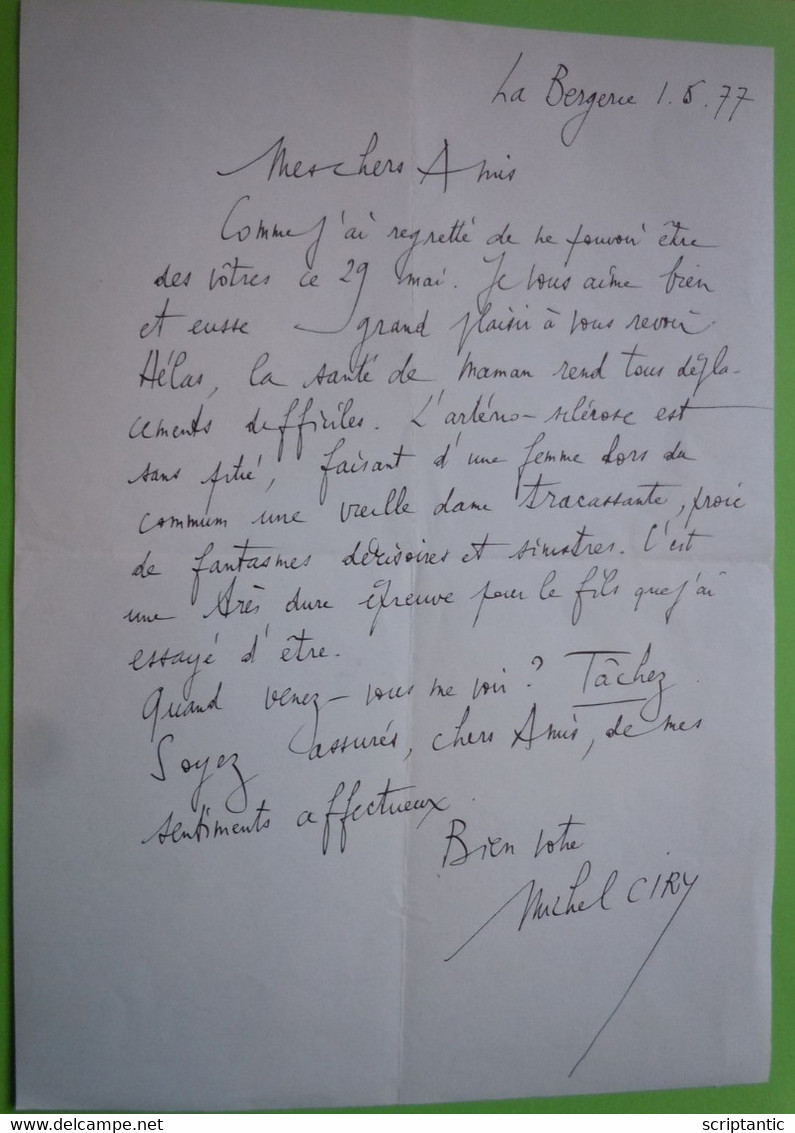 La Bergerie 1.6.77
Mes chers Amis
Comme j'ai regretté de ne pouvoir être
des vôtres ce 29 mai. Je vous aime bien
et eusse grand plaisir à vous revoir.
Hélas, la santé de Maman rend tous dépla-
cements difficiles. L'artério-sclérose est
sans pitié, faisant d'une femme hors du
commun une vieille dame tracassante, proie
de fantasmes dérisoires et sinistres. C'est
une très dure épreuve pour le fils que j'ai
essayé d'être.
Quand venez-vous me voir? Tâchez
Soyez assurés, chers Amis, de mes
sentiments affectueux.
Bien vôtre
Michel CIRY
scriptantic